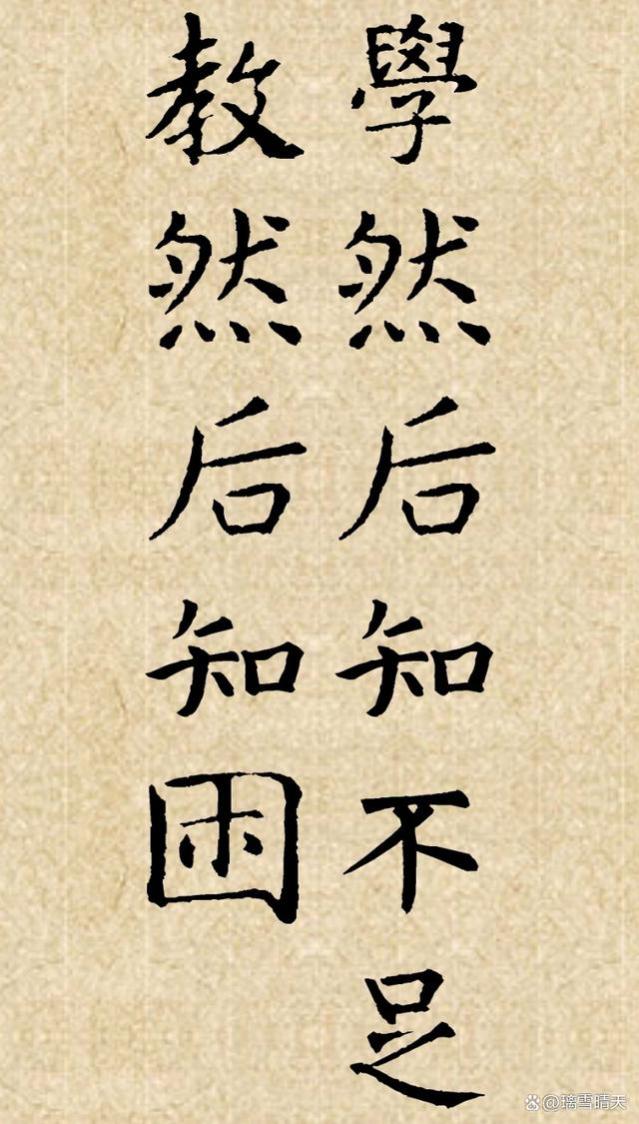 學然后知不足
教然后知困
@璃雪晴天